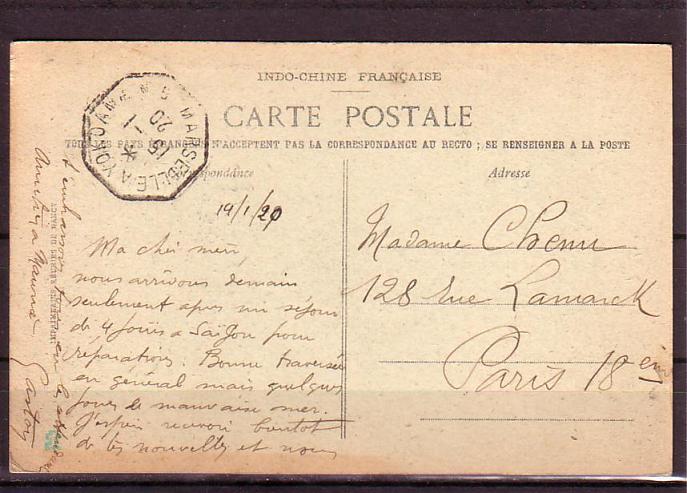 INDO-CHINE FRANÇAISE
CARTE POSTALE
TOUS LES PAYS ÉTRANGERS N'ACCEPTENT PAS LA CORRESPONDANCE AU RECTO ; SE RENSEIGNER A LA POSTE
Correspondance
Adresse
MARSEILLE A YOKOHAMA N 5
15 -1
20
19/1/20
Ma chère
nous arrivons demain
seulement après un séjour
de 4 jours à Saïgon pour
réparations. Bonne traversée
en général mais quelques
jours de mauvaise mer.
J'espère recevoir bientôt
de tes nouvelles et nous
t'embrassons
Gaston
Madame Chenu
128 rue Lamarck
Paris 18 em